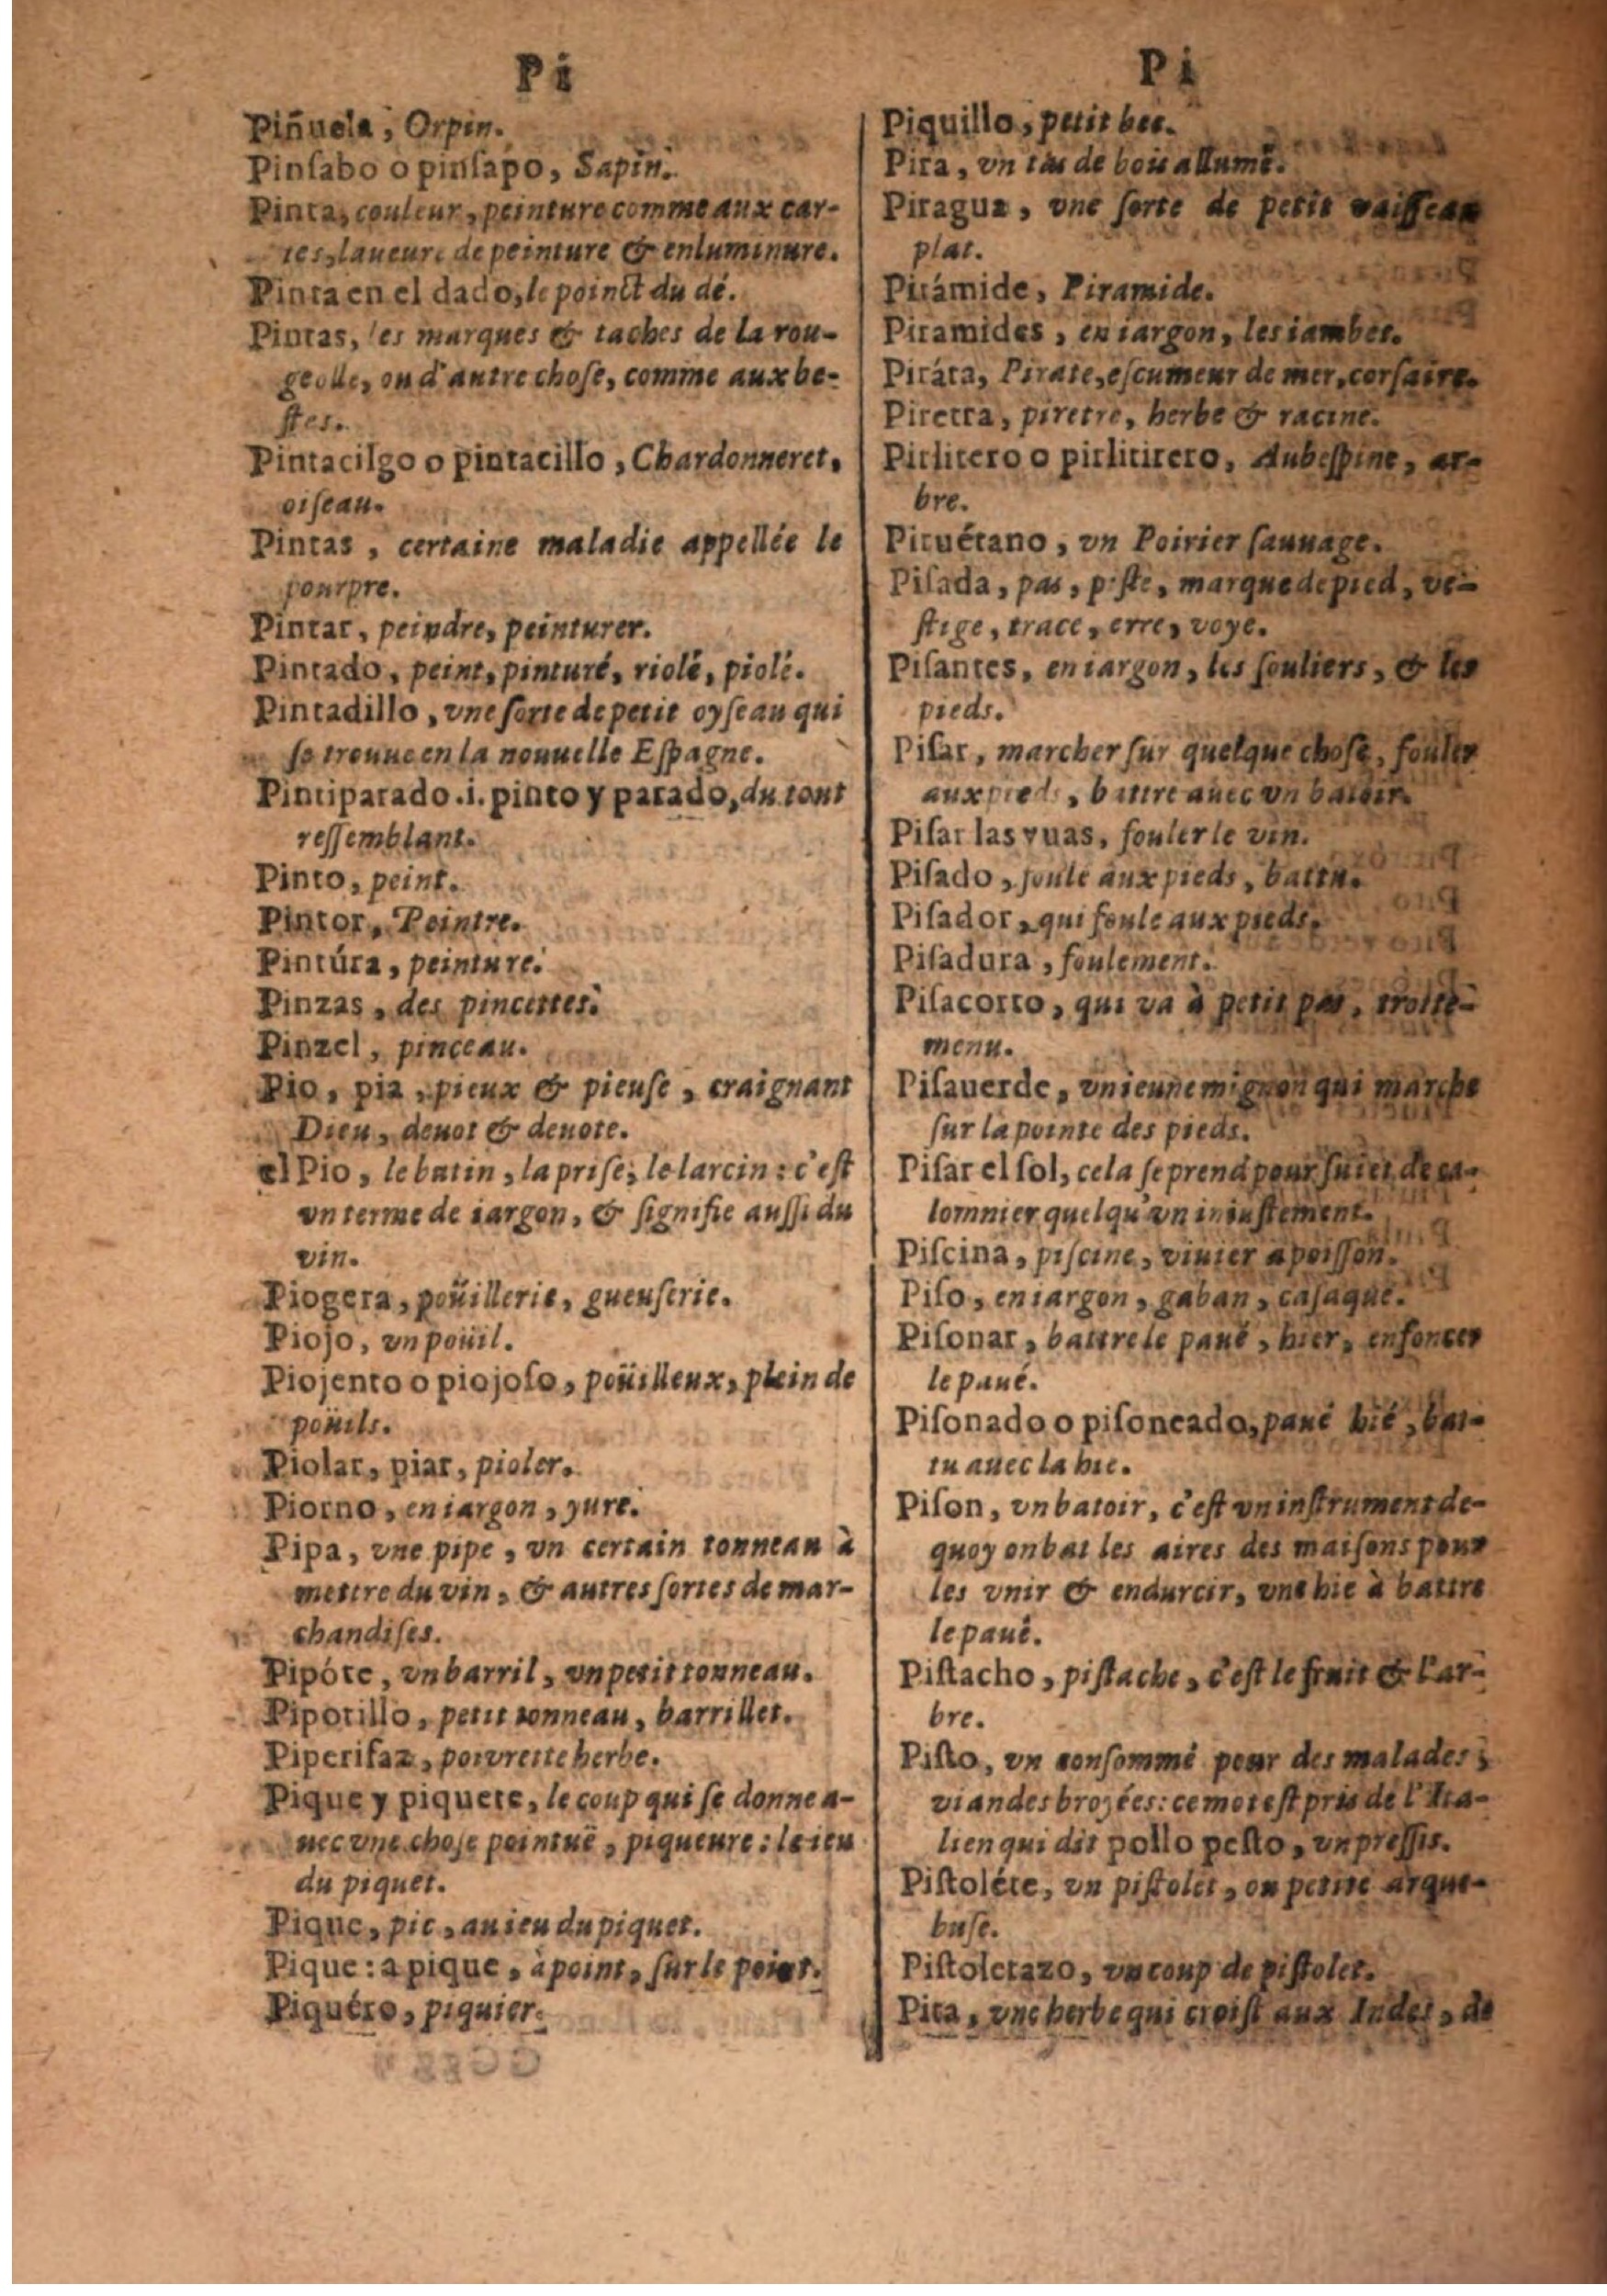 Pi
Piñuela, Orpin.
Pinſabo o pinſapo, Sapin.
Pinta, couleur, peinture comme aux car-
tes, laueure de peinture & enluminure.
Pinta en el dado, le poinct du dé.
Pintas, les marques & taches de la rou-
geolle, ou d'autre choſe, comme aux be-
ſtes.
Pintacilgo o pintacillo, Chardonneret,
oiſeau.
Pintas, certaine maladie appellée le
pourpre.
Pintar, peindre, peinturer.
Pintado, peint, pinturé, riolé, piolé.
Pintadillo, vne ſorte de petit oyſeau qui
ſe trouue en la nouuelle Eſpagne.
Pintiparado .i. pinto y parado, du tout
reſſemblant.
Pinto, peint.
Pintor, Peintre.
Pintúra, peinture.
Pinzas, des pincettes.
Pinzel, pinceau.
Pio, pia, pieux & pieuſe, craignant
Dieu, deuot & deuote.
el Pio, le butin, la priſe, le larcin: c'eſt
vn terme de iargon, & ſignifie auſſi du
vin.
Piogera, poüillerie, gueuſerie.
Piojo, vn poüil.
Piojento o piojoſo, poüilleux, plein de
poüils.
Piolar, piar, pioler.
Piorno, en iargon, yure.
Pipa, vne pipe, vn certain tonneau à
mettre du vin, & autres ſortes de mar-
chandiſes.
Pipóte, vn barril, vn petit tonneau.
Pipotillo, petit tonneau, barrillet.
Piperifaz, poivrette herbe.
Pique y piquete, le coup qui ſe donne a-
uec vne choſe pointuë, piqueure: le ieu
du piquet.
Pique, pic, au ieu du piquet.
Pique: a pique, à point, ſur le point.
Piquéro, piquier.
Pi
Piquillo, petit bec.
Pira, vn tas de bois allumé.
Piragua, vne ſorte de petit vaiſſeau
plat.
Pirámide, Piramide.
Piramides, en iargon, les iambes.
Piráta, Pirate, eſcumeur de mer, corſaire.
Piretra, piretre, herbe & racine.
Pirlitero o pirlitirero, Aubeſpine, ar-
bre.
Piruétano, vn Poirier ſauuage.
Piſada, pas, piſte, marque de pied, ve-
ſtige, trace, erre, voye.
Piſantes, en iargon, les ſouliers, & les
pieds.
Piſar, marcher ſur quelque choſe, fouler
aux pieds, battre auec vn batoir.
Piſar las vuas, fouler le vin.
Piſado, foulé aux pieds, battu.
Piſador, qui foule aux pieds.
Piſadura, foulement.
Piſacorto, qui va à petit pas, trotte-
menu.
Piſauerde, vn ieune mignon qui marche
ſur la pointe des pieds.
Piſar el ſol, cela ſe prend pour ſuiet de ca-
lomnier quelqu'vn iniuſtement.
Piſcina, piſcine, viuier à poiſſon.
Piſo, en iargon, gaban, caſaque.
Piſonar, battre le paué, hier, enfoncer
le paué.
Piſonado o piſoneado, paué hié, bat-
tu auec la hie.
Piſon, vn batoir, c'eſt vn inſtrument de-
quoy on bat les aires des maiſons pour
les vnir & endurcir, vne hie à battre
le paué.
Piſtacho, piſtache, c'eſt le fruit & l'ar-
bre.
Piſto, vn conſommé pour des malades,
viandes broyées: ce mot eſt pris de l'Ita-
lien qui dit pollo peſto, vn preſſis.
Piſtoléte, vn piſtolet, ou petite arque-
buſe.
Piſtoletazo, vn coup de piſtolet.
Pita, vne herbe qui croiſt aux Indes, de